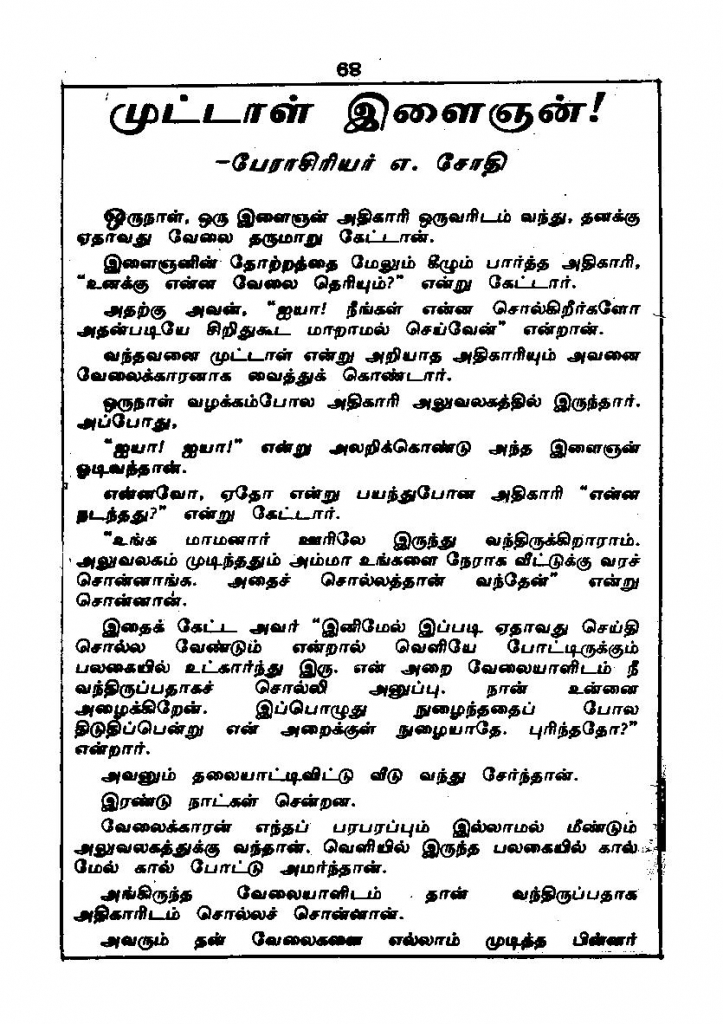 68
முட்டாள் இளைஞன்!
-பேராசிரியர் எ. சோதி
ஒருநாள், ஒரு இளைஞன் அதிகாரி ஒருவரிடம் வந்து, தனக்கு
ஏதாவது வேலை தருமாறு கேட்டான்.
இளைஞனின் தோற்றத்தை மேலும் கீழும் பார்த்த அதிகாரி,
“உனக்கு என்ன வேலை தெரியும்?” என்று கேட்டார்.
அதற்கு அவன், “ஐயா! நீங்கள் என்ன சொல்கிறீர்களோ
அதன்படியே சிறிதுகூட மாறாமல் செய்வேன்” என்றான்.
வந்தவனை முட்டாள் என்று அறியாத அதிகாரியும் அவனை
வேலைக்காரனாக வைத்துக் கொண்டார்.
ஒருநாள் வழக்கம்போல அதிகாரி அலுவலகத்தில் இருந்தார்.
அப்போது,
“ஐயா! ஐயா!” என்று அலறிக்கொண்டு அந்த இளைஞன்
ஓடிவந்தான்.
என்னவோ, ஏதோ என்று பயந்துபோன அதிகாரி “என்ன
நடந்தது?” என்று கேட்டார்.
“உங்க மாமனார் ஊரிலே இருந்து வந்திருக்கிறாராம்.
அலுவலகம் முடிந்ததும் அம்மா உங்களை நேராக வீட்டுக்கு வரச்
சொன்னாங்க. அதைச் சொல்லத்தான் வந்தேன்” என்று
சொன்னான்.
இதைக் கேட்ட அவர் “இனிமேல் இப்படி ஏதாவது செய்தி
சொல்ல வேண்டும் என்றால் வெளியே போட்டிருக்கும்
பலகையில் உட்கார்ந்து இரு. என் அறை வேலையாளிடம் நீ
வந்திருப்பதாகச் சொல்லி அனுப்பு. நான் உன்னை
அழைக்கிறேன். இப்பொழுது நுழைந்ததைப் போல
திடுதிப்பென்று என் அறைக்குள் நுழையாதே. புரிந்ததோ?”
என்றார்.
அவனும் தலையாட்டிவிட்டு வீடு வந்து சேர்ந்தான்.
இரண்டு நாட்கள் சென்றன.
வேலைக்காரன் எந்தப் பரபரப்பும் இல்லாமல் மீண்டும்
அலுவலகத்துக்கு வந்தான். வெளியில் இருந்த பலகையில் கால்
மேல் கால் போட்டு அமர்ந்தான்.
அங்கிருந்த வேலையாளிடம் தான் வந்திருப்பதாக
அதிகாரிடம் சொல்லச் சொன்னான்.
அவரும் தன் வேலைகளை எல்லாம் முடித்த பின்னர்